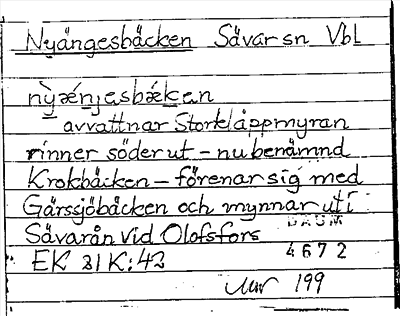 Nyängesbäcken Sävar sn Vbl
nỳǽnjesbæ̀ken
avvattnar Storkläppmyran
rinner söderut - nu benämnd
Krokbäcken - förenar sig med
Gärssjöbäcken och mynnar uti
Sävarån vid Olofsfors DAUM
EK 21 K:42 4672
199